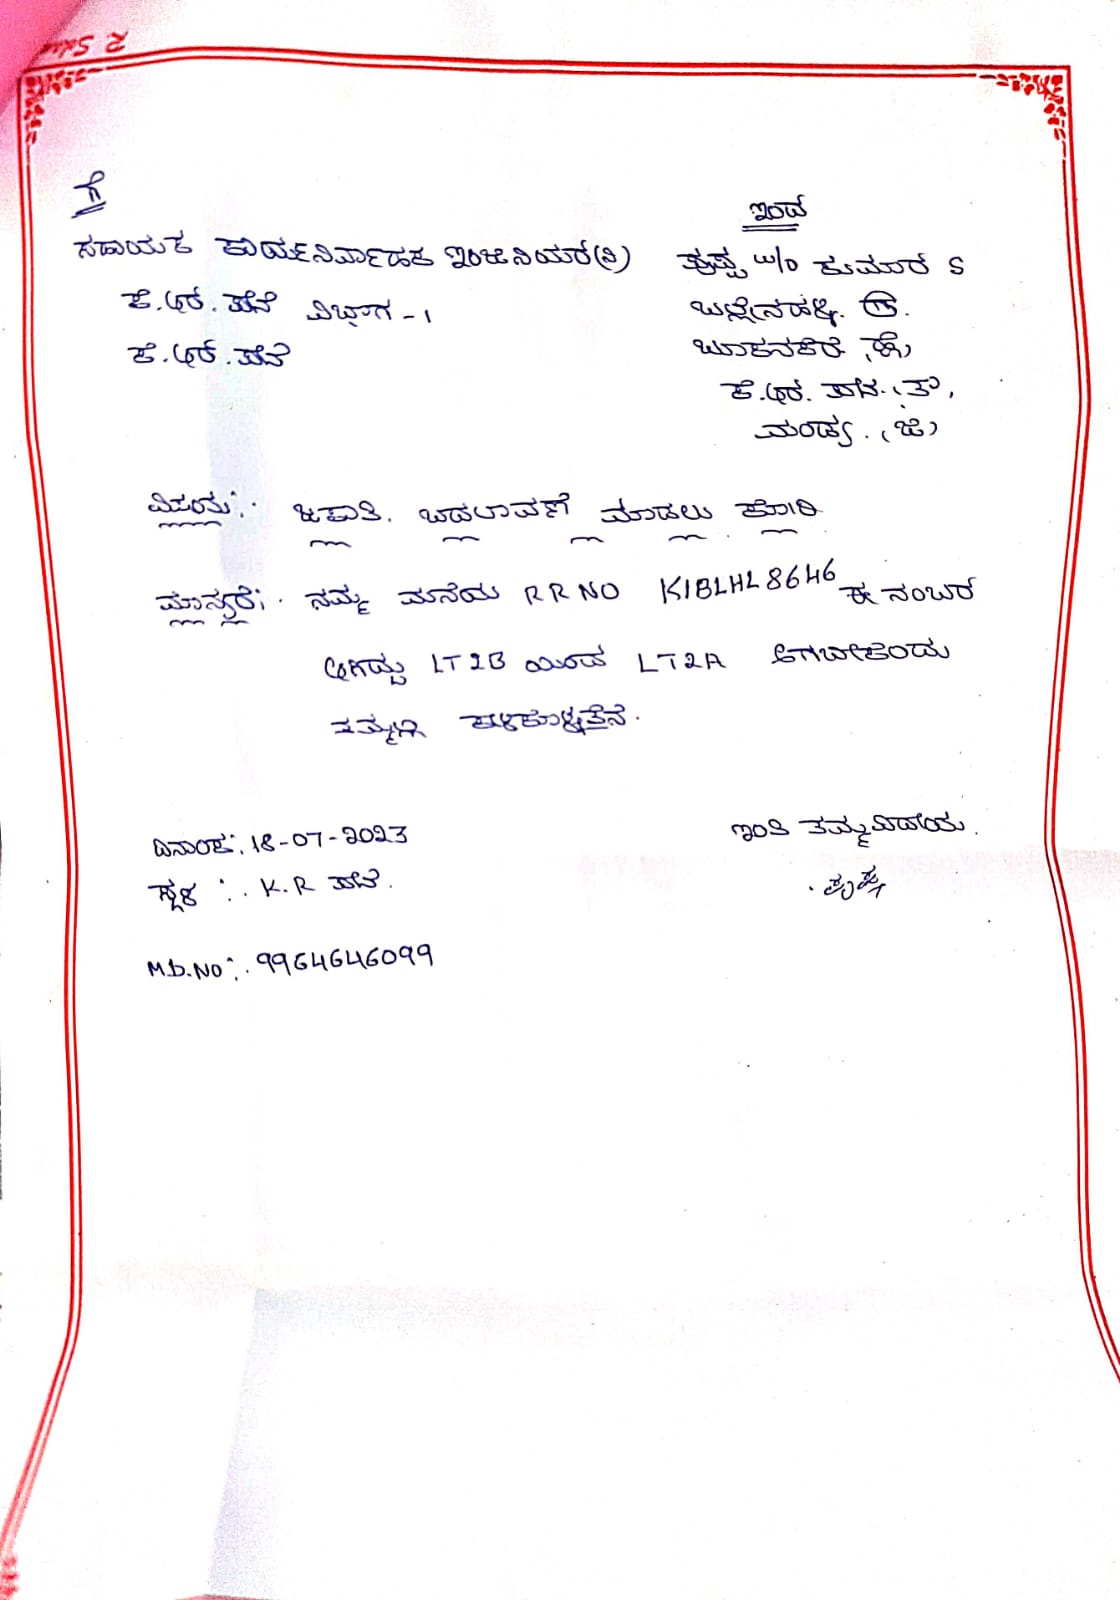 ಗೆ
ಸಹಾಯಕ ಕಾರ್ಯನಿರ್ವಾಹಕ ಇಂಜಿನಿಯರ್(ವಿ)
ಕೆ.ಆರ್.ಪೇಟೆ ವಿಭಾಗ-1
ಕೆ.ಆರ್.ಪೇಟೆ
ಇಂದ
ಪುಷ್ಪ w/o ಕುಮಾರ S
ಬಲ್ಲೇನಹಳ್ಳಿ.
ಬೂಕನಕೆರೆ (ಹೋ)
ಕೆ.ಆರ್. ಪೇಟೆ. (ತಾ),
ಮಂಡ್ಯ. (ಜಿ)
ವಿಷಯ:. ಜಕಾತಿ. ಬದಲಾವಣೆ ಮಾಡಲು ಕೋರಿ
ಮಾನ್ಯರೆ;. ನಮ್ಮ ಮನೆಯ RRNO K1BLHL8646 ಈ ನಂಬರ
ಆಗಿದ್ದು LT2B ಯಿಂದ LT2A ಆಗಬೇಕೆಂದು
ತಮ್ಮಲ್ಲಿ ಕೇಳಿಕೊಳ್ಳುತ್ತೇನೆ.
ದಿನಾಂಕ:. 18-07-2023
ಸ್ಥಳ :. K.R ಪೇಟೆ.
ಇಂತಿ ತಮ್ಮವಿಧೇಯ.
ಪುಷ್ಪ
M.b.NO:. 9964646099